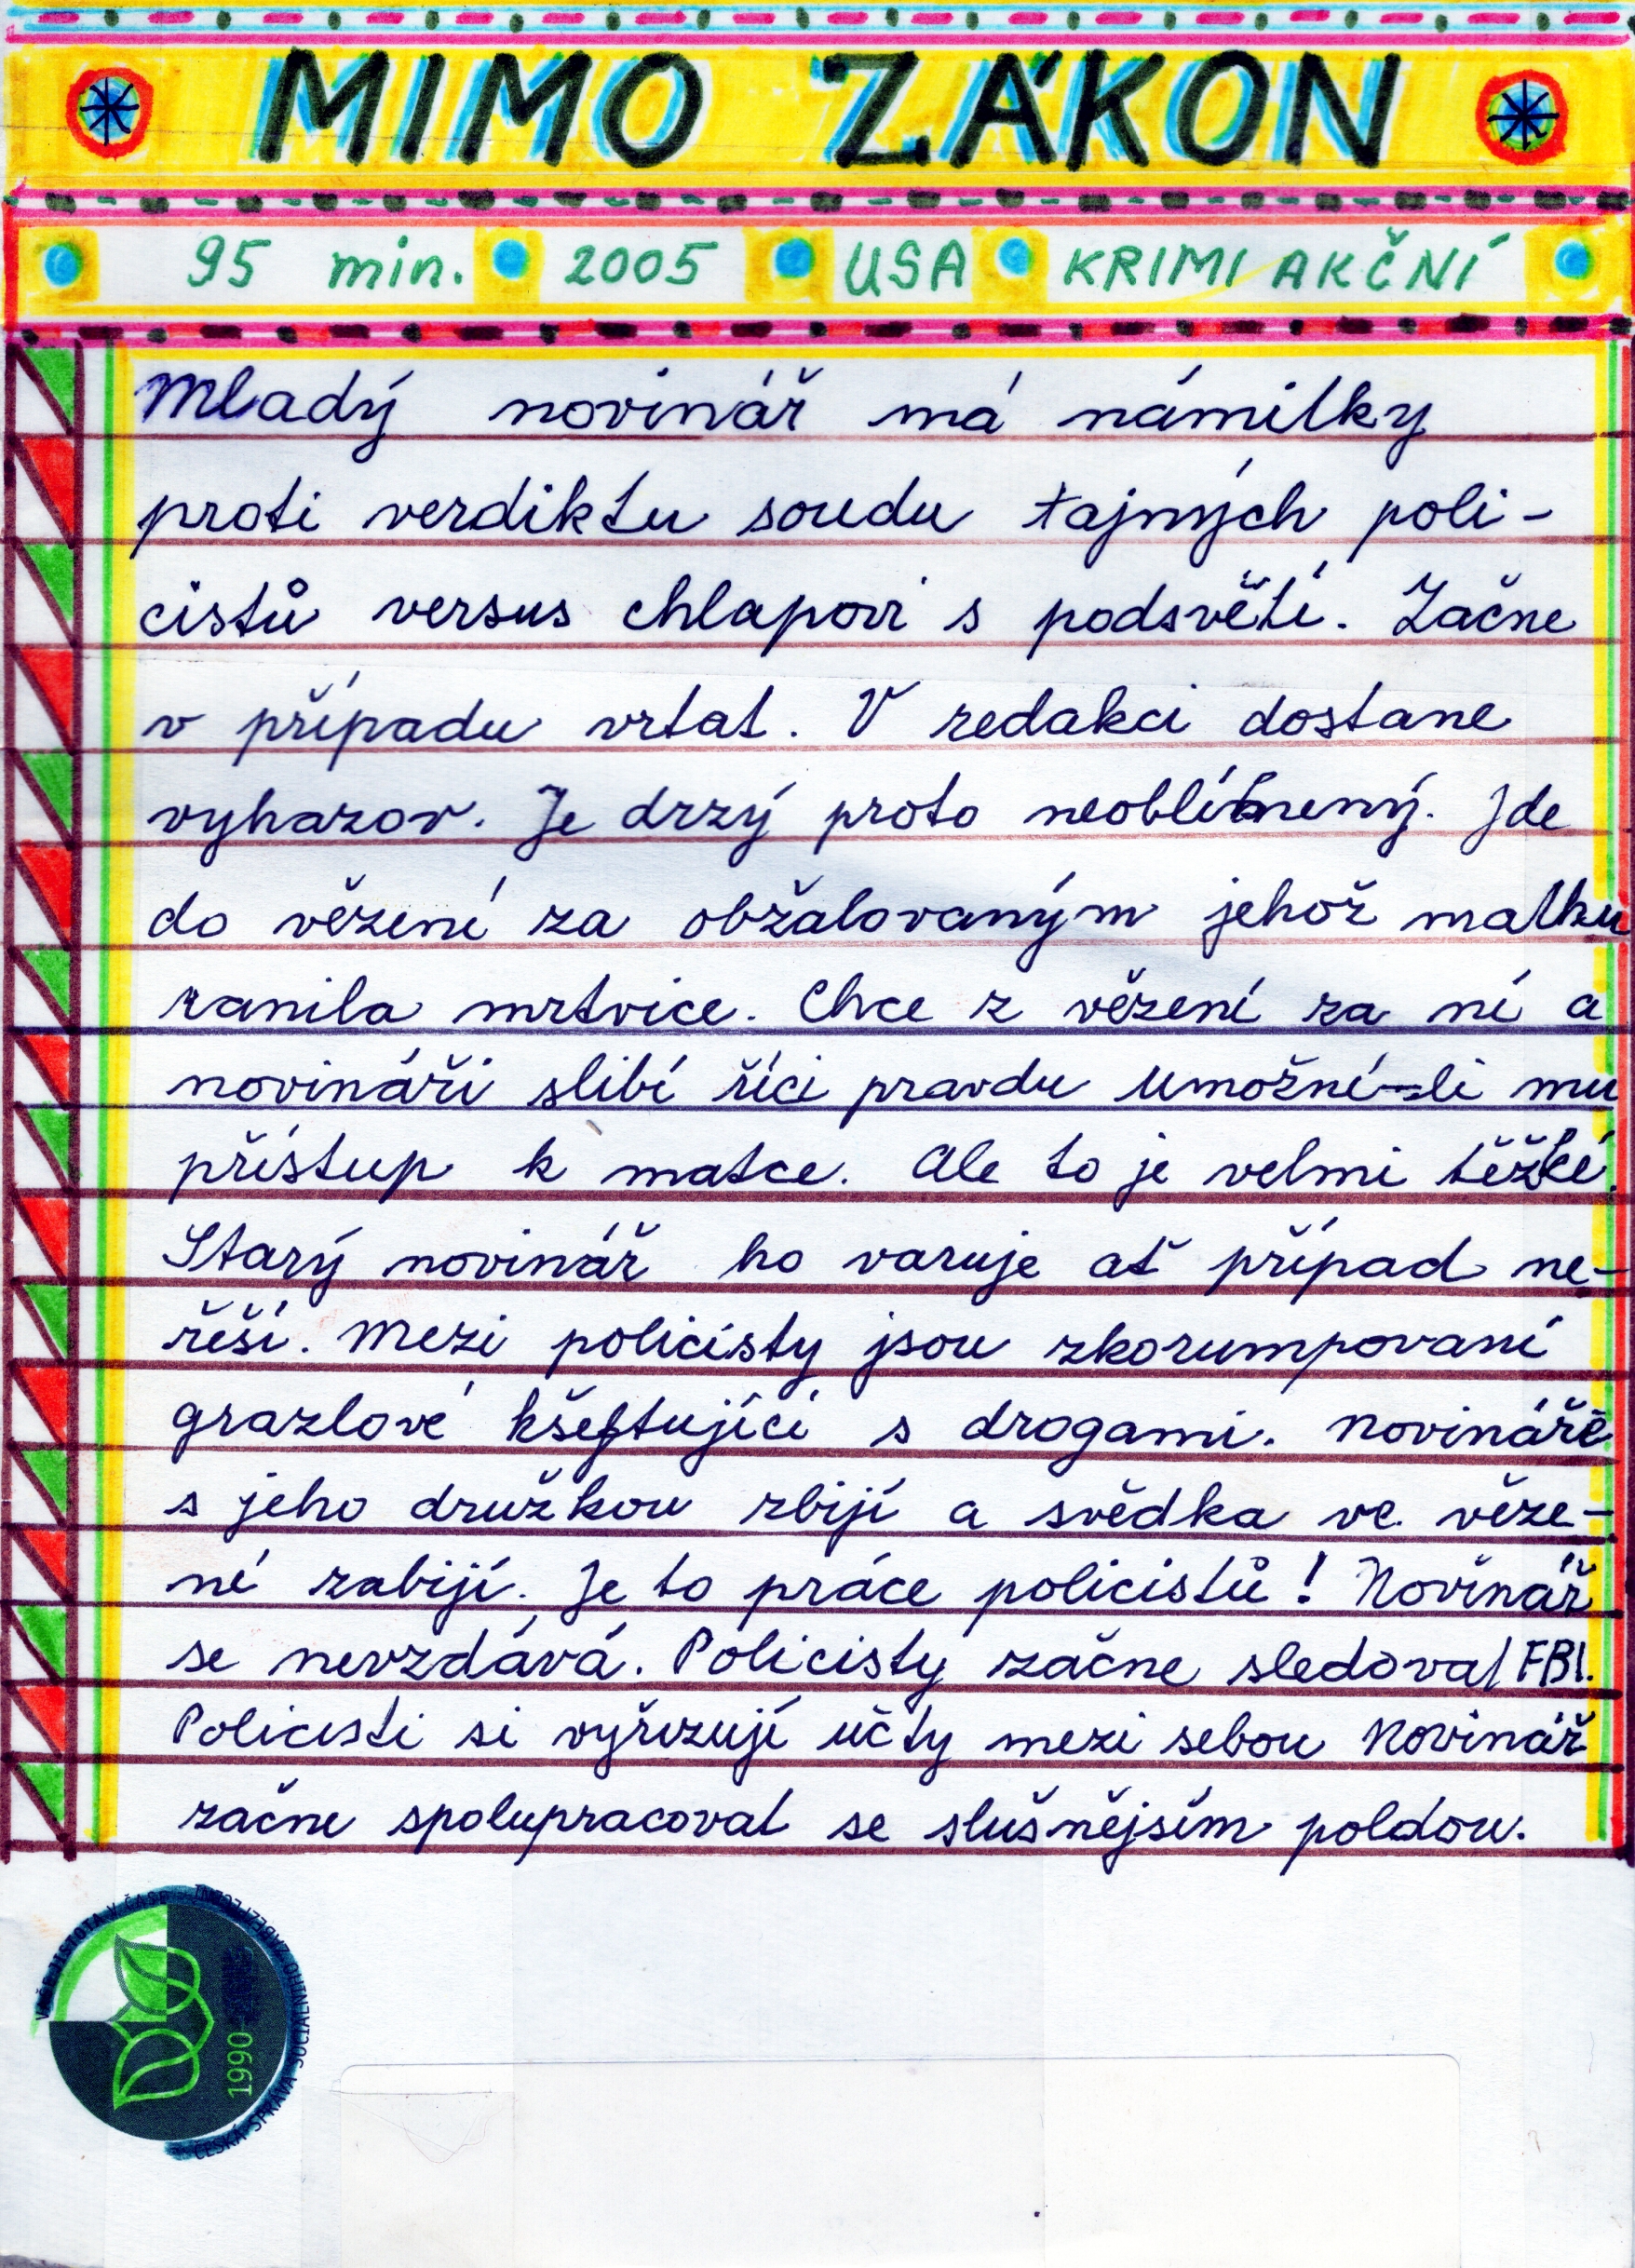 MIMO ZÁKON
95 min. 2005 USA KRIMI AKČNÍ
Mladý novinář má námilky
proti verdiktu soudu tajných poli-
cistů versus chlapovi s podsvětí. Začne
v případu vrtat. V redakci dostane
vyhazov. Je drzý proto neoblíbnený. Jde
do vězení za obžalovaným jehož matku
ranila mrtvice. Chce z vězení za ní a
novináři slibí říci pravdu umožní-li mu
přístup k matce. Ale to je velmi těžké.
Starý novinář ho varuje ať případ ne-
řeší. Mezi policisty jsou zkorumpovaní
grazlové kšeftující s drogami. Novináře
s jeho družkou zbijí a svědka ve věze-
ní zabijí. Je to práce policistů! Novinář
se nevzdává. Policisty začne sledovat FBI.
Policisti si vyřizují účty mezi sebou Novinář
začne spolupracovat se slušnějsím poldou.
VAŠE JISTOTA V ČASE
ČESKÁ SPRÁVA SOCIÁLNÍHO ZABEZPEČENÍ
1990